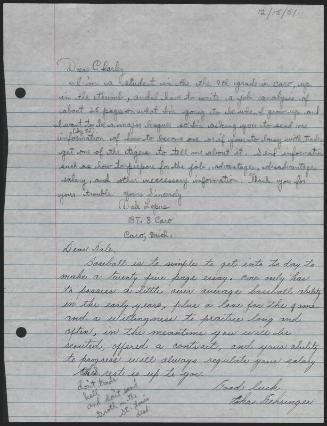 12/15/51
Dear Charley
I'm in a student in the the 9th grade in Caro,
in the thumb, and I have to write a job analysis of
about 25 pages on what I'm going to be when I grow up and
I want to be a major league so I'm asking you to send me
information of how to become one or if you're busy with trades
get one of the tigers to tell me about it. Send information
such as how to prepare for the job, advantages, disadvantage
salary, and other neccessary information. Thank you for
your trouble. Yours Sincerely
Dale
RT. 3 Caro
Caro, Mich.
Dear Dale,
Baseball is to simple to get into to day to
make a twenty five page essay. One only has
to possess a little, over average baseball ability
in the early years, plus a love for the game
and a willingness to practice long and
often, in the meantime you will be
scouted, offered a contract, and your ability
to progress will always regulate your salary
the rest is up to you.
Good luck,
Chas. Gehringer
don't know
and don't send
St. Louis